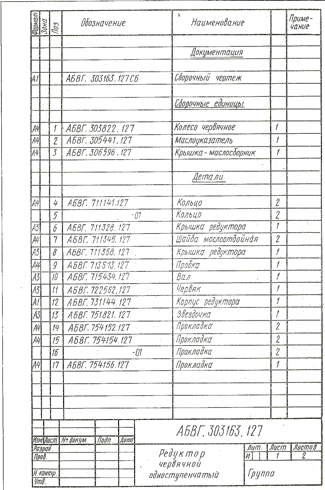 Формат Зона Поз Обозначение Наименование Приме-
чание
Документация
А1 АБВГ. 303163.127СБ Сборочный чертеж
Сборочные единицы
А4 1 АБВГ. 303822. 127 Колесо червячное 1
А4 2 АБВГ. 305441. 127 Маслоуказатель 1
А4 3 АБВГ. 306596. 127 Крышка-маслосборник 1
Детали
А4 4 АБВГ. 711141.127 Кольцо 2
5 -01 Кольцо 2
А3 6 АБВГ. 711328. 127 Крышка редуктора 1
А4 7 АБВГ. 711345. 127 Шайба маслоотбойная 2
А3 8 АБВГ. 711358. 127 Крышка редуктора 1
А4 9 АБВГ. 713513. 127 Пробка 1
А3 10 АБВГ. 715434. 127 Вал 1
А3 11 АБВГ. 722562. 127 Червяк 1
А1 12 АБВГ. 731144. 127 Корпус редуктора 1
А3 13 АБВГ. 751821. 127 Звездочка 1
А4 14 АБВГ. 754152. 127 Прокладка 2
А4 15 АБВГ. 754154. 127 Прокладка 2
16 -01 Прокладка 2
А4 17 АБВГ. 754156. 127 Прокладка 1
АБВГ. 303163. 127
Изм Лист № докум Подп Дата
Разраб.
Пров.
Н. контр.
Утв.
Редуктор
червячной
одноступенчатый
Лит. Лист Листов
И 1 2
Группа